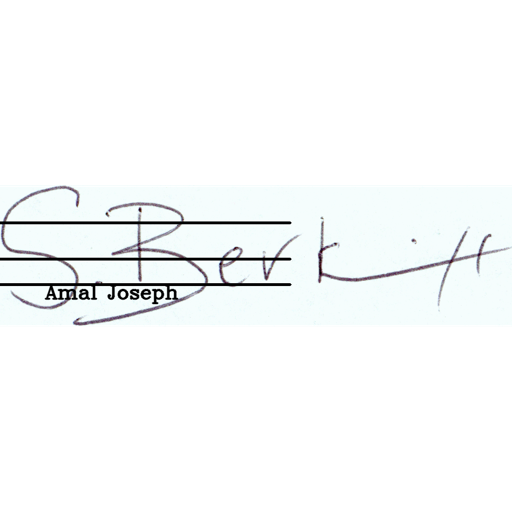 S Berkitt
Amal Joseph